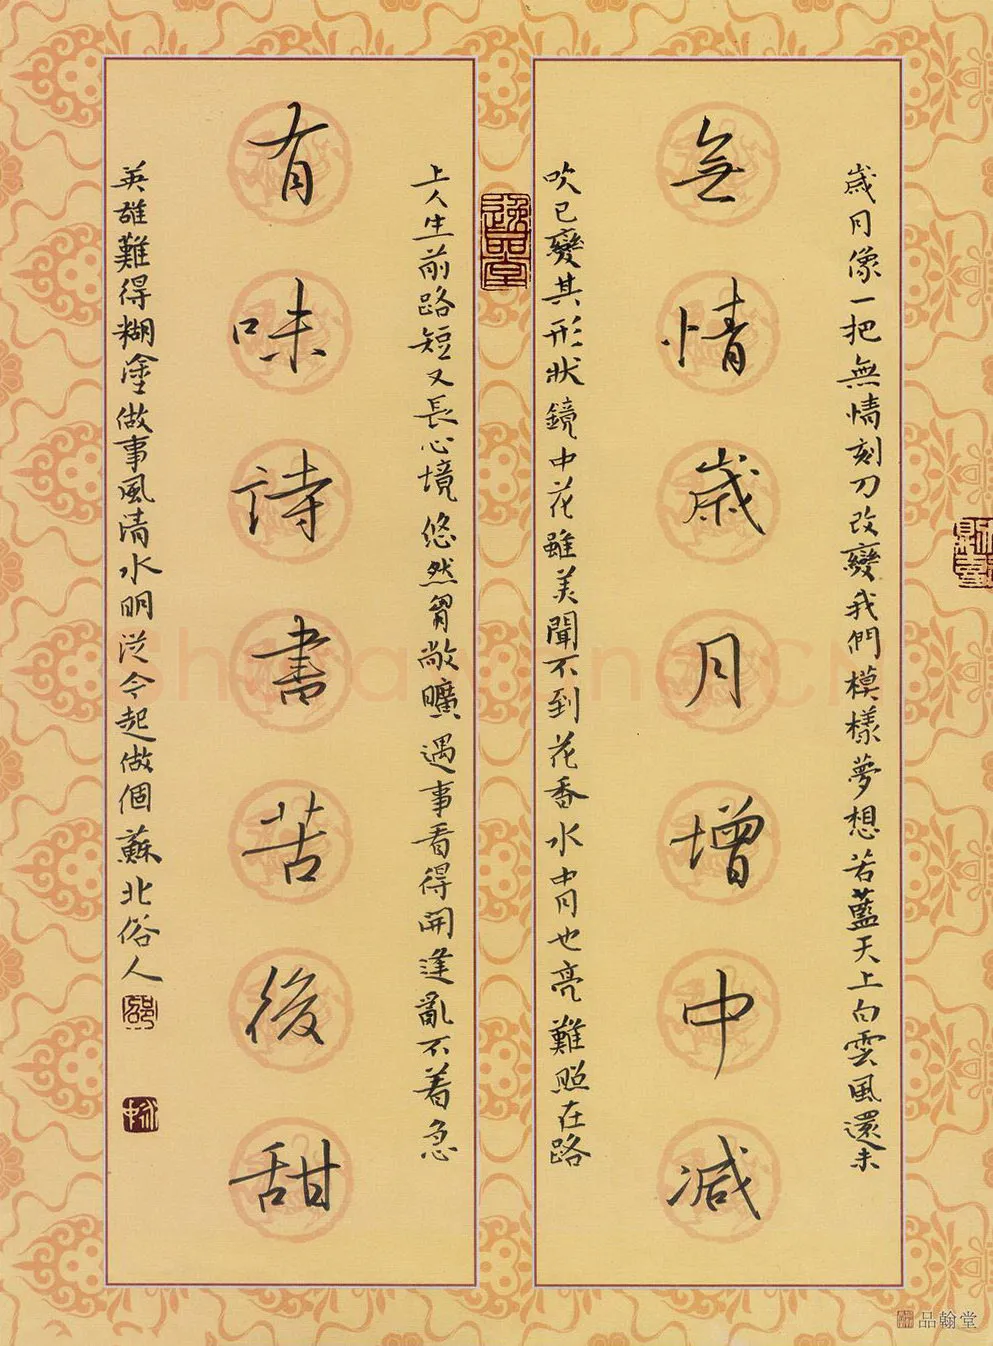 歲月像一把無情刻刀改變我們模樣夢想若藍天上白雲風還未
無情歲月增中減
吹已變其形狀鏡中花雖美聞不到花香水中月也亮難照在路
上人生前路短又長心境悠然胷敞曠遇事看得開逢亂不着急
有味詩書苦後甜
英雄難得糊塗做事風清水明從今起做個蘇北俗人
逸品堂
品翰堂